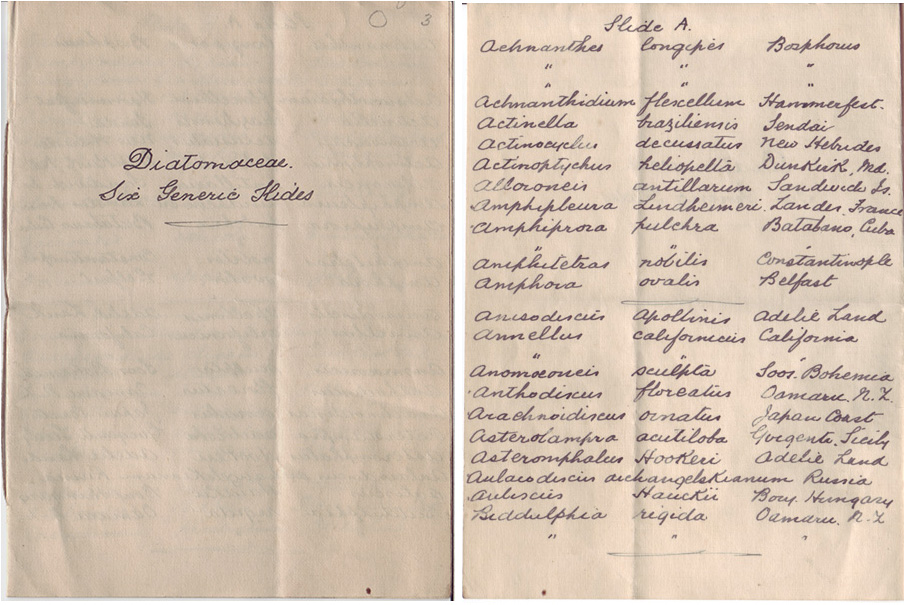 3
Diatomaceae.
Six Generic Slides
Slide A.
Achnanthes longipes Bosphorus
" " "
Achnanthidium flexellum Hammerfest.
Actinella braziliensis Sendai
Actinocyclus decussatus New Hebrides
Actinoptychus heliopelta Dunkirk, Md.
Alloioneis antillarum Sandwich Is.
Amphipleura Lindheimeri. Landes, France
Amphiprora pulchra Batabano, Cuba
" " "
Amphitetras nobilis Constantinople
Amphora ovalis Belfast
Anisodiscus Apollinis Adelie Land
Annellus californicus California
" " "
Anomoeoneis sculpta Soos. Bohemia
Anthodiscus floreatus Oamaru. N.Z.
Arachnoidiscus ornatus Japan Coast
Asterolampra acutiloba Girgente. Sicily
Asteromphalus Hookeri Adelie Land
Aulacodiscus archangelskianum Russia
Auliscus Hauckii Bory. Hungary
Biddulphia rigida Oamaru. N.Z
" " "